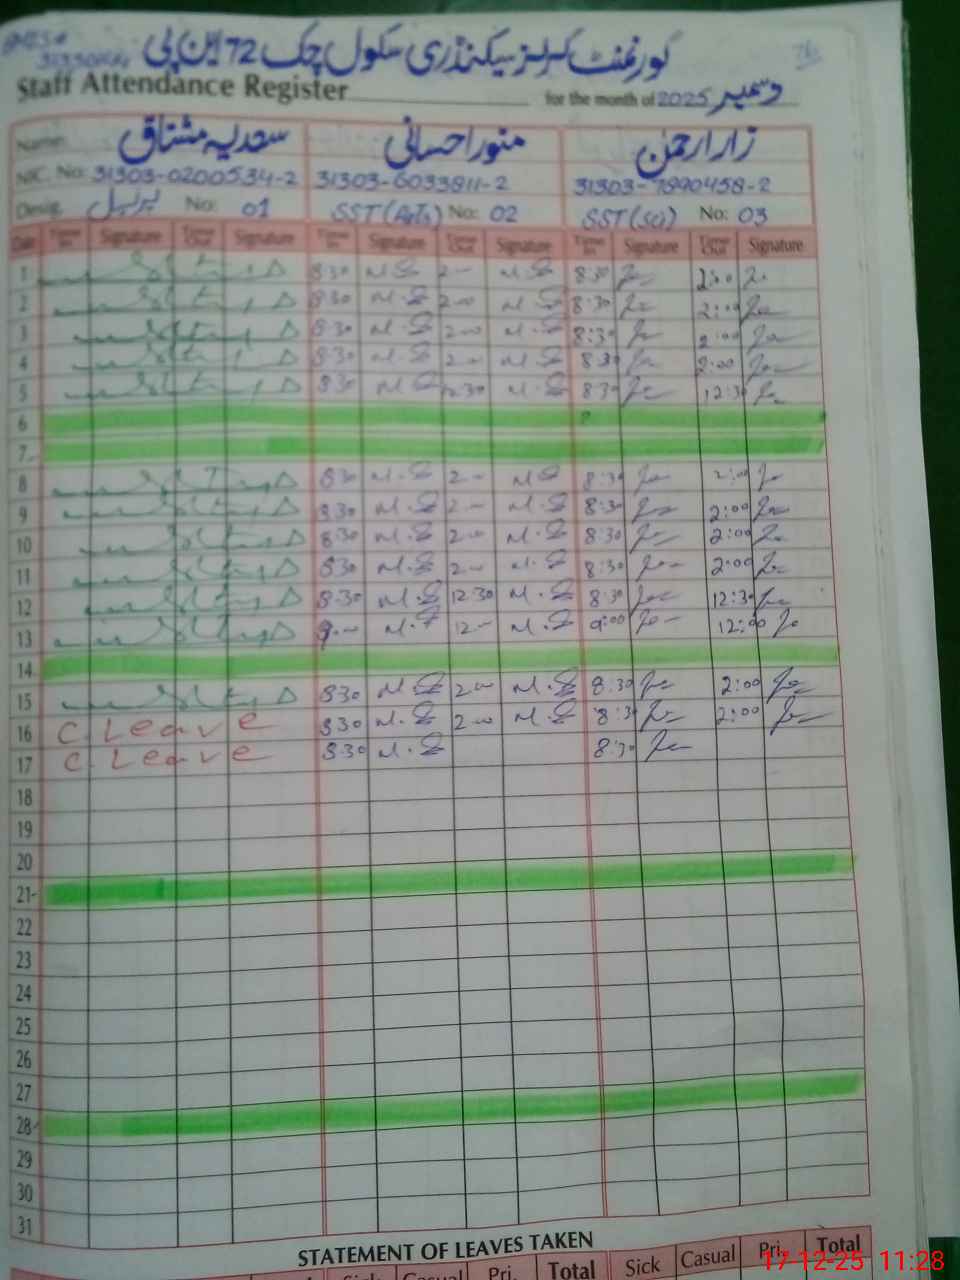 گورنمنٹ گرلز سیکنڈری سکول چک 72 این پی
Staff Attendance Register for the month of دسمبر 2025
Name: سعدیہ مشتاق منور احسانی
NIC. No: 31303-0200534-2 31303-6033811-2 31303-7890458-2
Desig. پرنسپل No: 01 SST (Arts) No: 02 SST (Sci) No: 03
Date Time In Signature Time Out Signature Time In Signature Time Out Signature Time In Signature Time Out Signature
1 8:30 M.S 2-00 M.S 8:30 2:00
2 8:30 M.S 2-00 M.S 8:30 2:00
3 8:30 M.S 2-00 M.S 8:30 2:00
4 8:30 M.S 2-00 M.S 8:30 2:00
5 8:30 M.S 12:30 M.S 8:30 12:30
6
7
8 8:30 M.S 2-00 M.S 8:30 2:00
9 8:30 M.S 2-00 M.S 8:30 2:00
10 8:30 M.S 2-00 M.S 8:30 2:00
11 8:30 M.S 2-00 M.S 8:30 2:00
12 8:30 M.S 12:30 M.S 8:30 12:30
13 9-00 M.S 12-00 M.S 9:00 12:00
14
15 8:30 M.S 2-00 M.S 8:30 2:00
16 C Leave 8:30 M.S 2-00 M.S 8:30 2:00
17 C. Leave 8:30 M.S 8:30
18
19
20
21
22
23
24
25
26
27
28
29
30
31
STATEMENT OF LEAVES TAKEN
Sick Casual Pri. Total Sick Casual Pri. Total
17-12-25 11:28